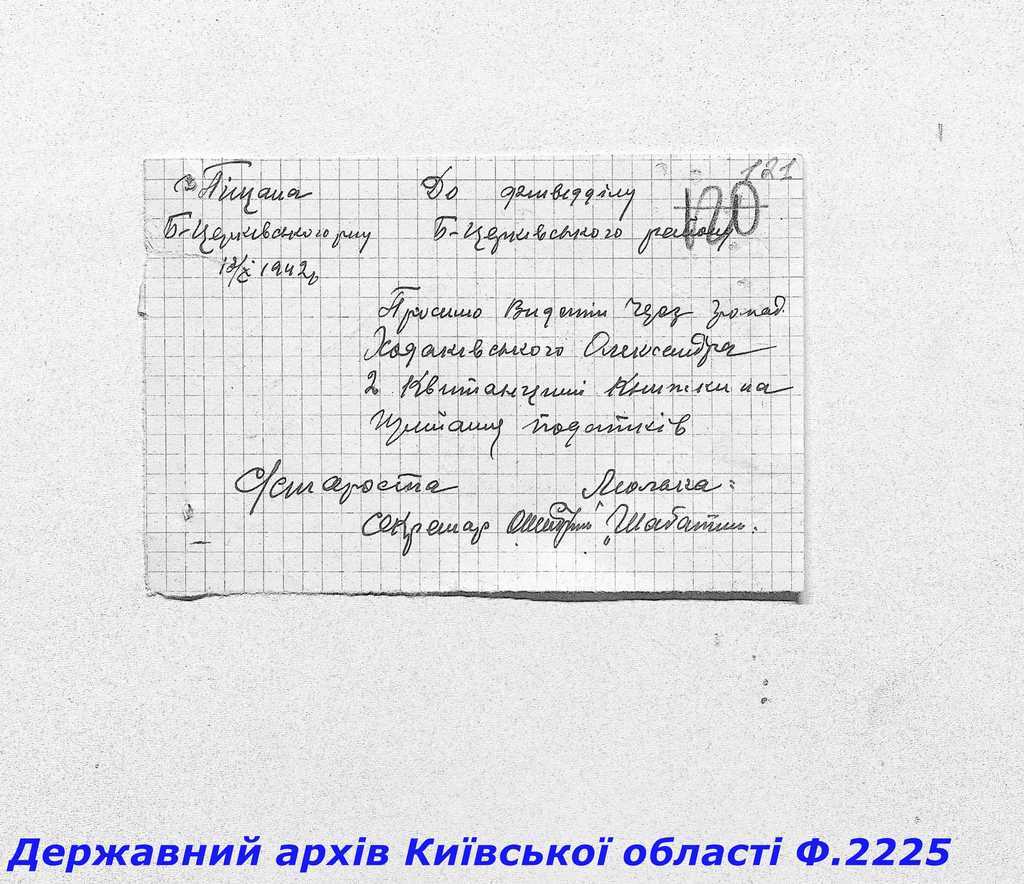 121
120
с Піщана
Б-Церківського р-ну
13/X 1942р
До фінвідділу
Б-Церківського району
Просимо Видати через громад.
Ходаківського Олександра
2 Квитанційні Книжки на
податків
С/староста
Секретар Шабатин.
Державний архів Київської області Ф.2225